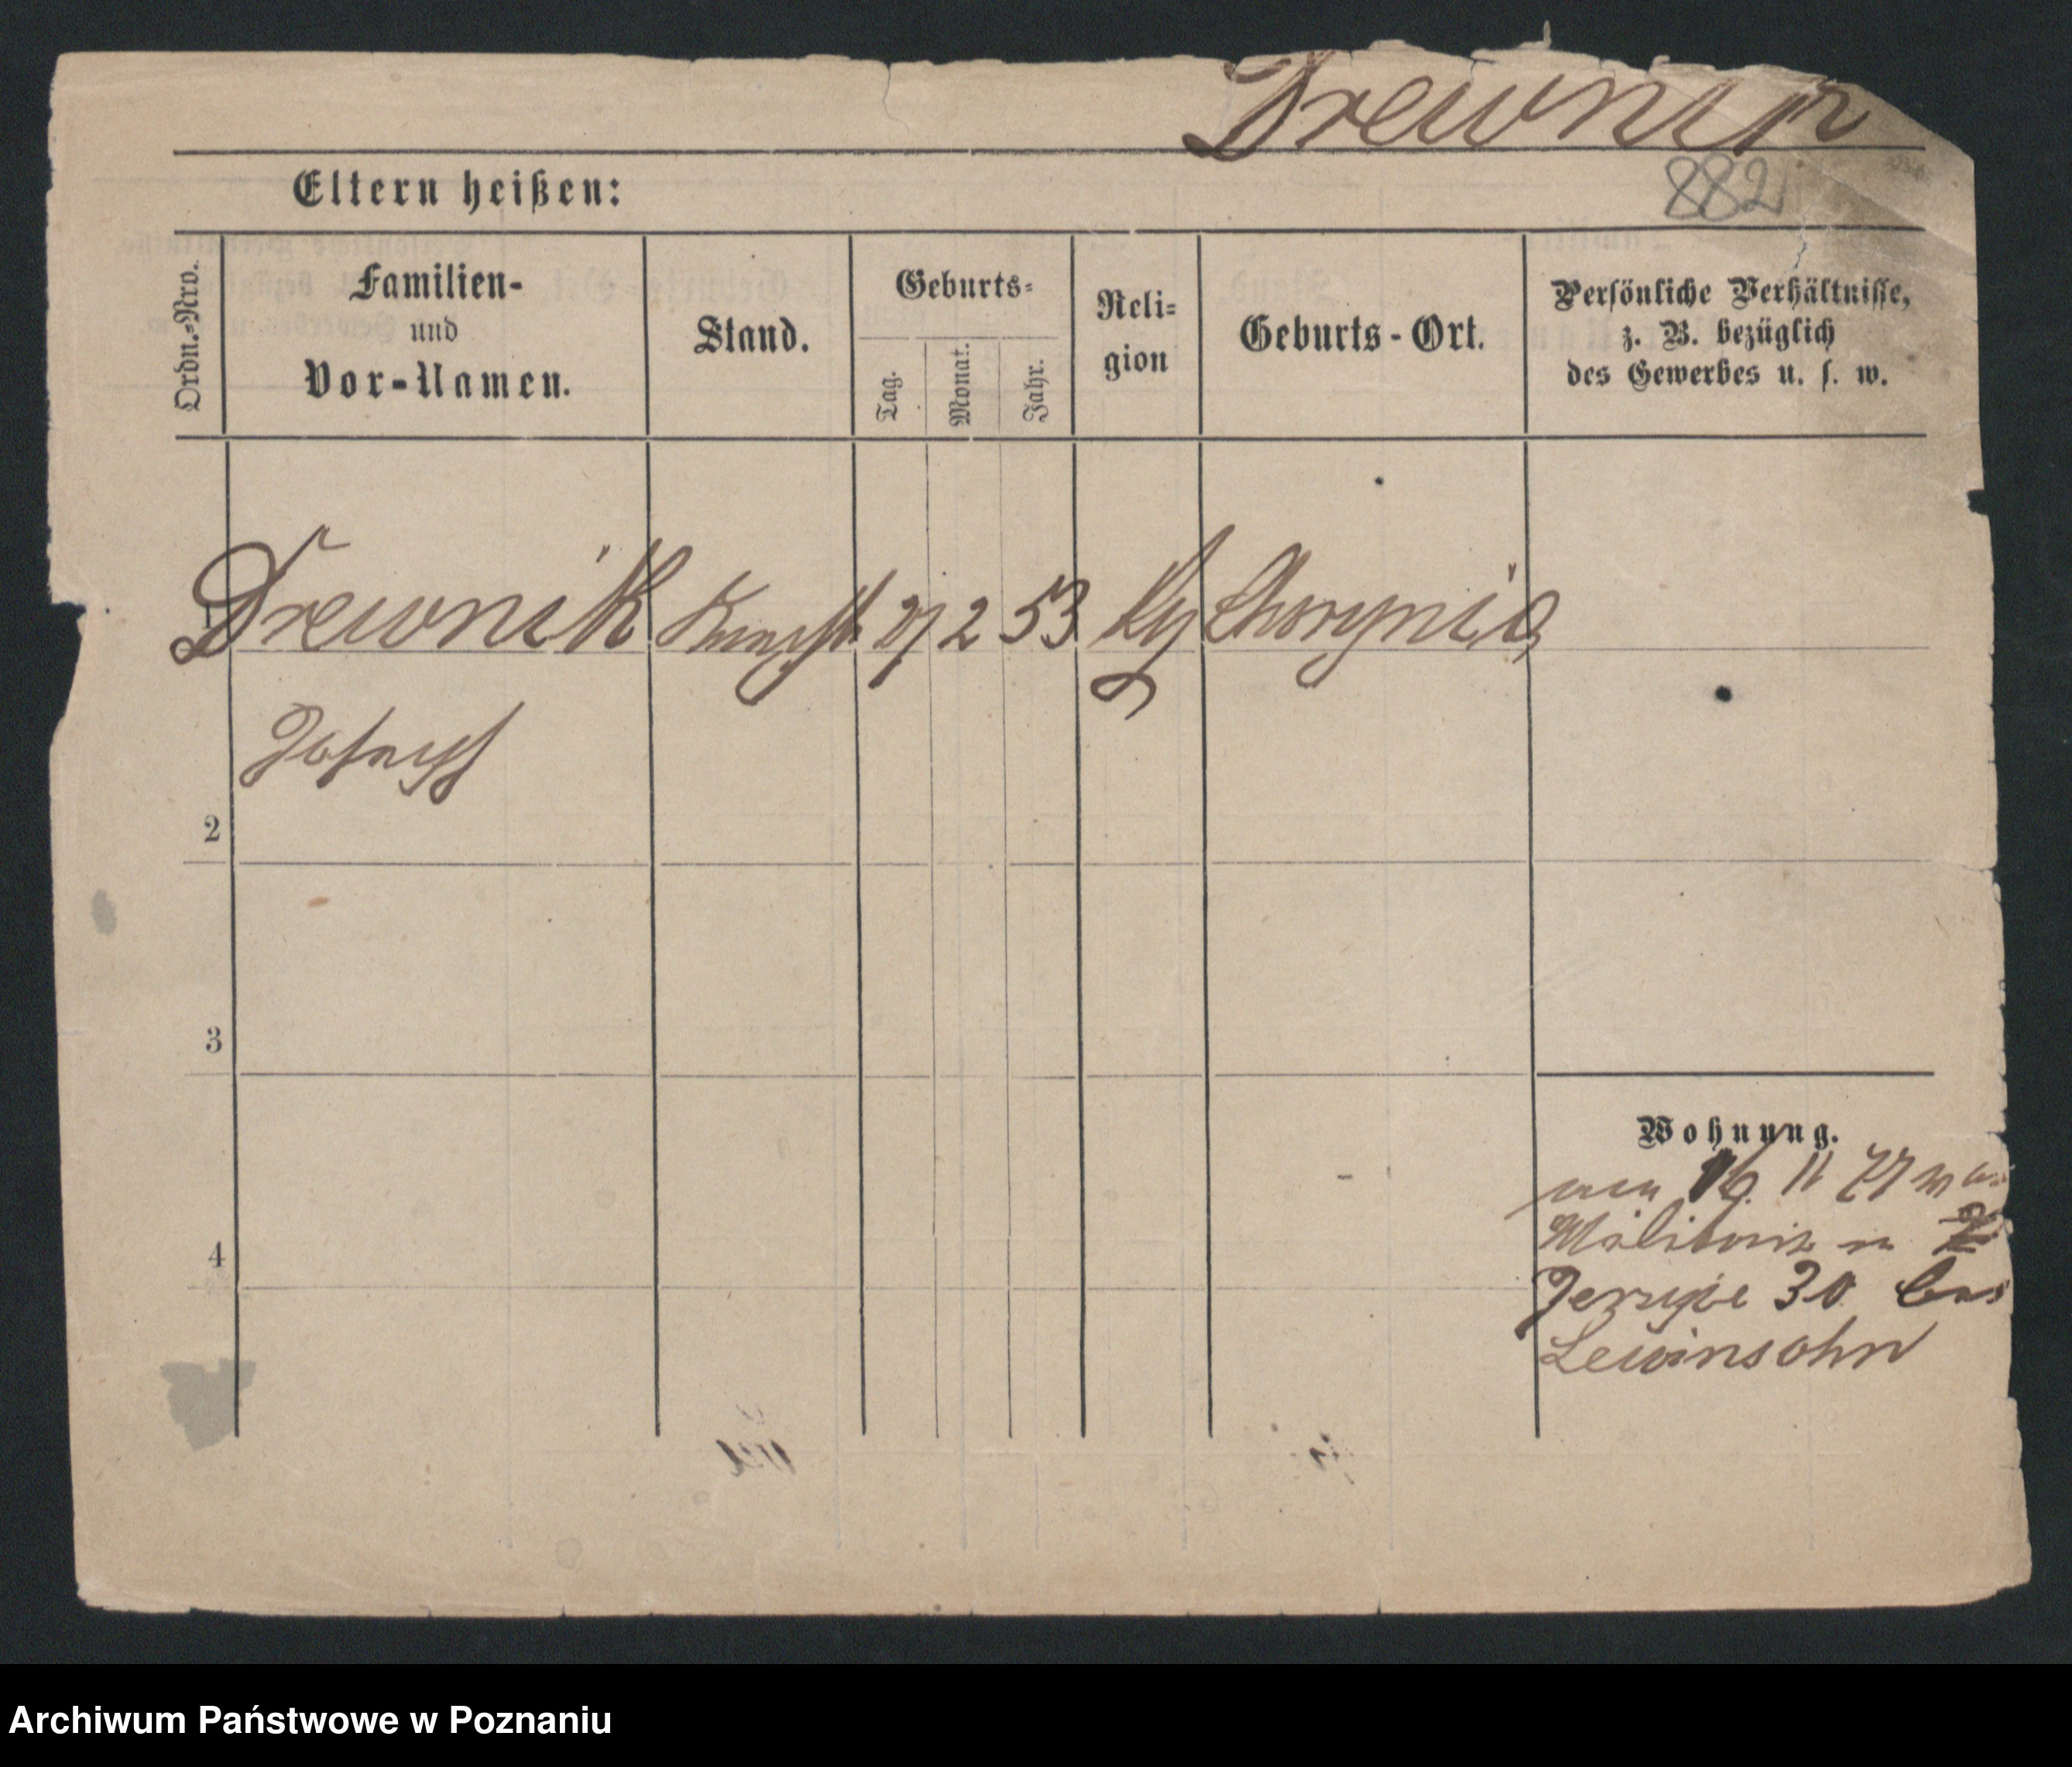 Drewnik
882
Eltern heißen:
Ordn.-Nro.
Familien-
und
Vor-Namen.
Stand.
Geburts-
Tag.
Monat.
Jahr.
Reli-
gion
Geburts-Ort.
Persönliche Verhältnisse,
z. B. bezüglich
des Gewerbes u. s. w.
1
Drewnik
27 2 53
Chorynia
Joseph
2
3
4
Wohnung.
16. 11
30
Lewinsohn
Archiwum Państwowe w Poznaniu